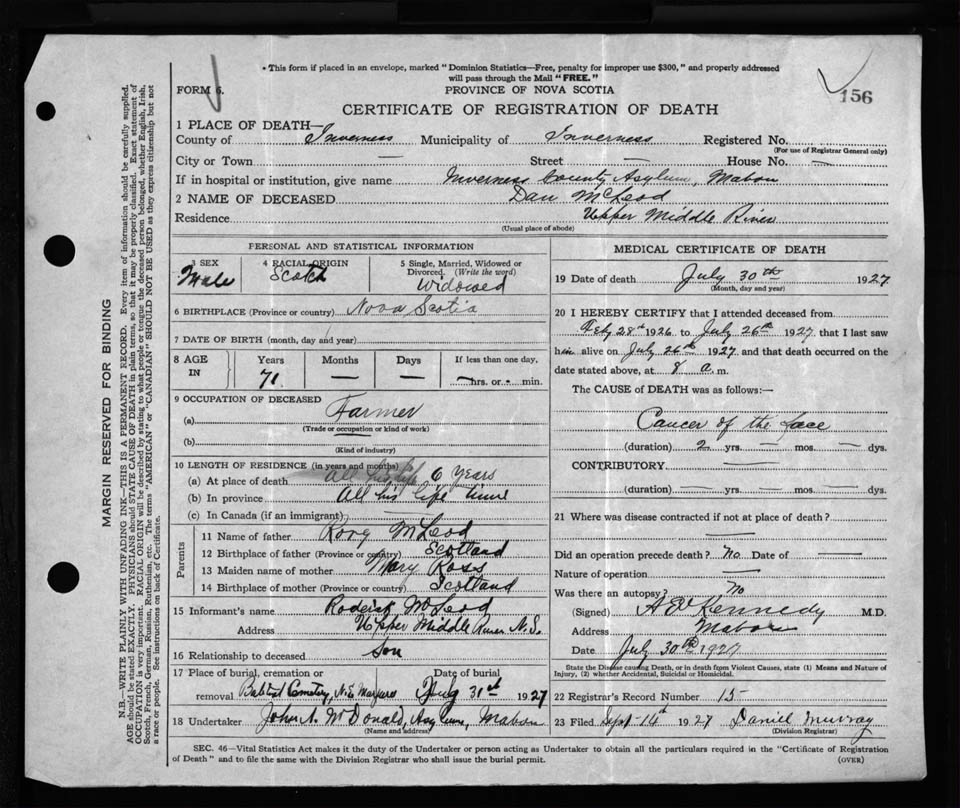 • This form if placed in an envelope, marked "Dominion Statistics—Free, penalty for improper use $300," and properly addressed
will pass through the Mail "FREE."
FORM 6.
PROVINCE OF NOVA SCOTIA
156
CERTIFICATE OF REGISTRATION OF DEATH
1 PLACE OF DEATH—
County of Inverness Municipality of Inverness Registered No.
(For use of Registrar General only)
City or Town — Street — House No. —
If in hospital or institution, give name Inverness County Asylum, Mabou
2 NAME OF DECEASED Dan McLeod
Residence Upper Middle River
(Usual place of abode)
PERSONAL AND STATISTICAL INFORMATION
3 SEX
Male
4 RACIAL ORIGIN
Scotch
5 Single, Married, Widowed or
Divorced. (Write the word)
Widowed
6 BIRTHPLACE (Province or country) Nova Scotia
7 DATE OF BIRTH (month, day and year)
8 AGE
IN
Years
71
Months
—
Days
—
If less than one day,
— hrs. or • min.
9 OCCUPATION OF DECEASED
(a) Farmer
(Trade or occupation or kind of work)
(b)
(Kind of industry)
10 LENGTH OF RESIDENCE (in years and months)
(a) At place of death 6 Years
(b) In province All his life time
(c) In Canada (if an immigrant) —
Parents
11 Name of father Rory McLeod
12 Birthplace of father (Province or country) Scotland
13 Maiden name of mother Mary Ross
14 Birthplace of mother (Province or country) Scotland
15 Informant's name Roderick McLeod
Address Upper Middle River N.S.
16 Relationship to deceased Son
17 Place of burial, cremation or Date of burial
removal Cemetery, N.E. Margaree July 31st 1927
18 Undertaker John A. McDonald, Asylum, Mabou
(Name and address)
MEDICAL CERTIFICATE OF DEATH
19 Date of death July 30th 1927
(Month, day and year)
20 I HEREBY CERTIFY that I attended deceased from
Feby 28th 1926 to July 26th 1927, that I last saw
him alive on July 26th 1927 and that death occurred on the
date stated above, at 8 a.m.
The CAUSE OF DEATH was as follows:—
Cancer of the face
(duration) 2 yrs. — mos. — dys.
CONTRIBUTORY —
(duration) — yrs. — mos. — dys.
21 Where was disease contracted if not at place of death?
—
Did an operation precede death? No Date of —
Nature of operation —
Was there an autopsy? No
(Signed) Kennedy M.D.
Address Mabou
Date July 30th 1927
State the Disease causing Death, or in death from Violent Causes, state (1) Means and Nature of
Injury, (2) whether Accidental, Suicidal or Homicidal.
22 Registrar's Record Number 15
23 Filed Sept 14th 1927 Daniel Murray
(Division Registrar)
SEC. 46—Vital Statistics Act makes it the duty of the Undertaker or person acting as Undertaker to obtain all the particulars required in the "Certificate of Registration
of Death" and to file the same with the Division Registrar who shall issue the burial permit.
(OVER)
MARGIN RESERVED FOR BINDING
N.B.—WRITE PLAINLY WITH UNFADING INK—THIS IS A PERMANENT RECORD. Every item of information should be carefully supplied.
AGE should be stated EXACTLY. PHYSICIANS should STATE CAUSE OF DEATH in plain terms, so that it may be properly classified. Exact statement of
OCCUPATION is very important. RACIAL ORIGIN will be described by stating to what people or tongue the deceased person belonged, whether English, Irish,
Scotch, French, German, Russian, Ruthenian, etc. The terms "AMERICAN" or "CANADIAN" SHOULD NOT BE USED as they express citizenship but not
a race or people. See instructions on back of Certificate.